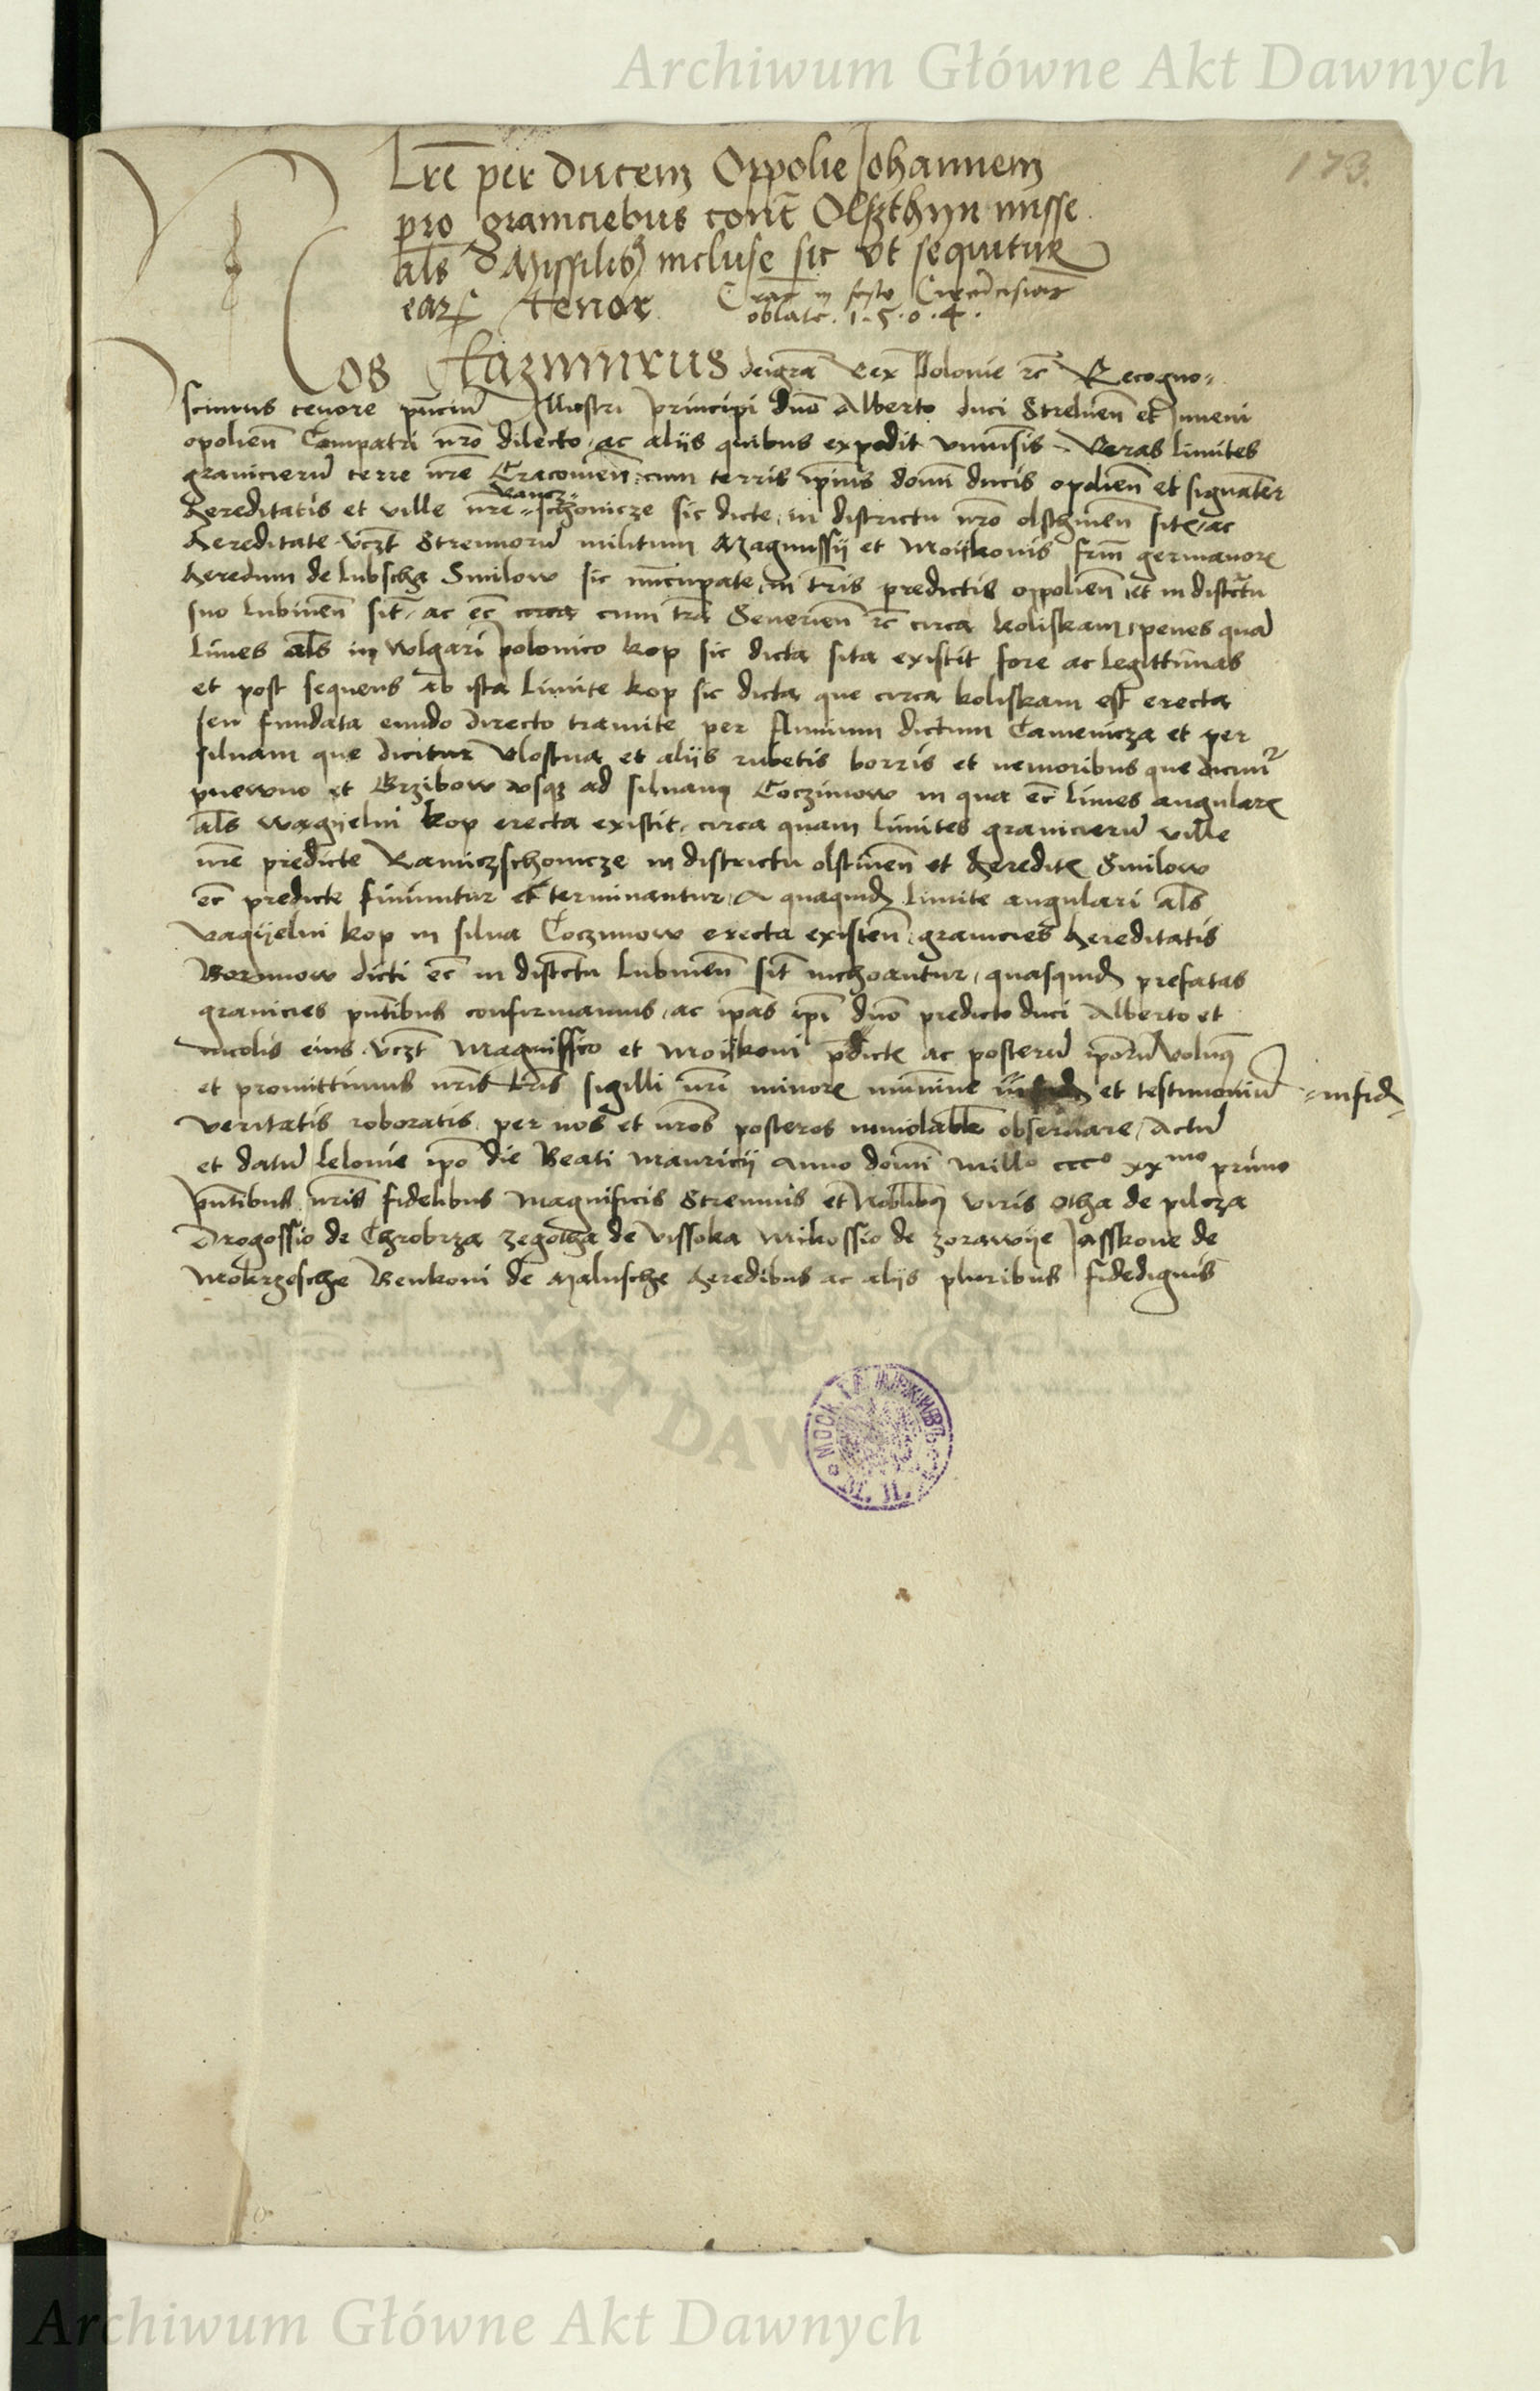 Archiwum Główne Akt Dawnych
173.
Lrē per ducem Oppolie Johannem
pro graniciebus contr̄ Olszthyn misse
als d Missilibꝰ incluse sic vt sequitur
earꝝ tenor Crac̄ in festo Circūcisioīs
oblate. 1.5.0.4.
Nos Kazimirus dei grā Rex Polonie rc̄ Recogno-
scimus tenore pn̄ciū Illustri principi dn̄o Alberto duci Strelien̄ et Juueni
opolien̄ Compatri nr̄o dilecto, ac aliis quibus expedit vniuersis Veras limites
granicierū terre nr̄e Cracouien̄ cum terris ip̄ius domini ducis opolien̄ et signanter
Rancz-
hereditatis et ville nr̄e -schonicze sic dicte, in districtu nr̄o olschinen̄ site, ac
hereditate vczt Strennuorū militum Magnussij et Moijkonis frm̄ germanorꝝ
heredum de lubscha Smilow sic nūcupate, in tr̄is predictis oppolien̄ et in distctu
suo lubinen̄ sit̄ ac ec̄ cum tr̄a Seuerien̄ rc̄ circa koliskam, penes quā
limes als in wlgari polonico kop sic dicta sita existit fore ac legittimas
et post sequens ab ista limite kop sic dicta que circa koliskam est erecta
seu fundata eundo directo tramite per fluuium dictum Camenicza et per
siluam que dicitur Vlostna et aliis rubetis borris et nemoribus que dicuntr
pnewno et Grzibow vsqꝫ ad siluam Coczinow in qua ec̄ limes angularꝭ
als wagijelni kop erecta existit, circa quam limites granicierū ville
nr̄e predicte Raniczschonicze in districtu olstinen̄ et hereditꝭ Smilow
ec̄ predicte finiuntur et terminantur, A quaquidꝫ limite angulari als
vagijelni kop in silua Coczinow erecta existen̄ granicies hereditatis
Boronow dicti ec̄ in distctu lubinen̄ sit̄ inchoantur, quasquidꝫ prefatas
granicies pn̄tibus confirmamus, ac ip̄as ip̄i dn̄o predicto duci Alberto et
incolis eius vczt Magnussio et Moijkoni p̄dictꝭ ac posterū ip̄orū volumꝰ
et promittimus nr̄is lr̄is sigilli nr̄i minorꝭ munimine et testimoniū -infidꝫ-
veritatis roboratis per nos et nr̄os posteros inuiolablr̄ obseruare, Actū
et datū lelouie ip̄o die Beati Mauricij Anno domini Millo cccº xxmo primo
pn̄tibus nr̄is fidelibus Magnificis Strennuis et Nobilibꝰ viris Otha de pilcza
Drogossio de Chrobrza zegotha de Vissoka Mikossio de zorawije Jasskone de
Mokrzesche Benkoni de Malusche heredibus ac alijs pluribus fidedignis
Archiwum Główne Akt Dawnych